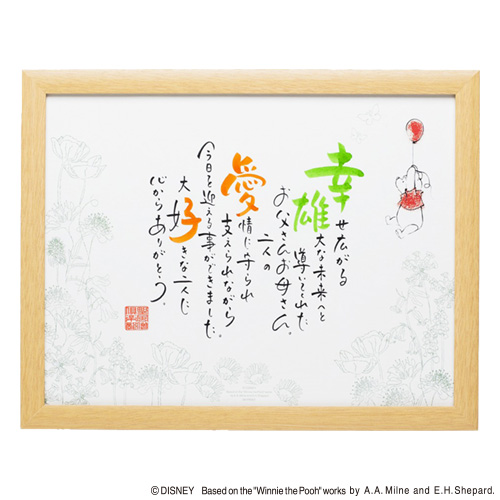 幸せ広がる
雄大な未来へと
導いてくれた
お父さんお母さん。
二人の
愛情に守られ
支えられながら
今日を迎える事ができました。
大好きな二人に
心からありがとう。
©DISNEY Based on the "Winnie the Pooh" works by A.A. Milne and E.H. Shepard.